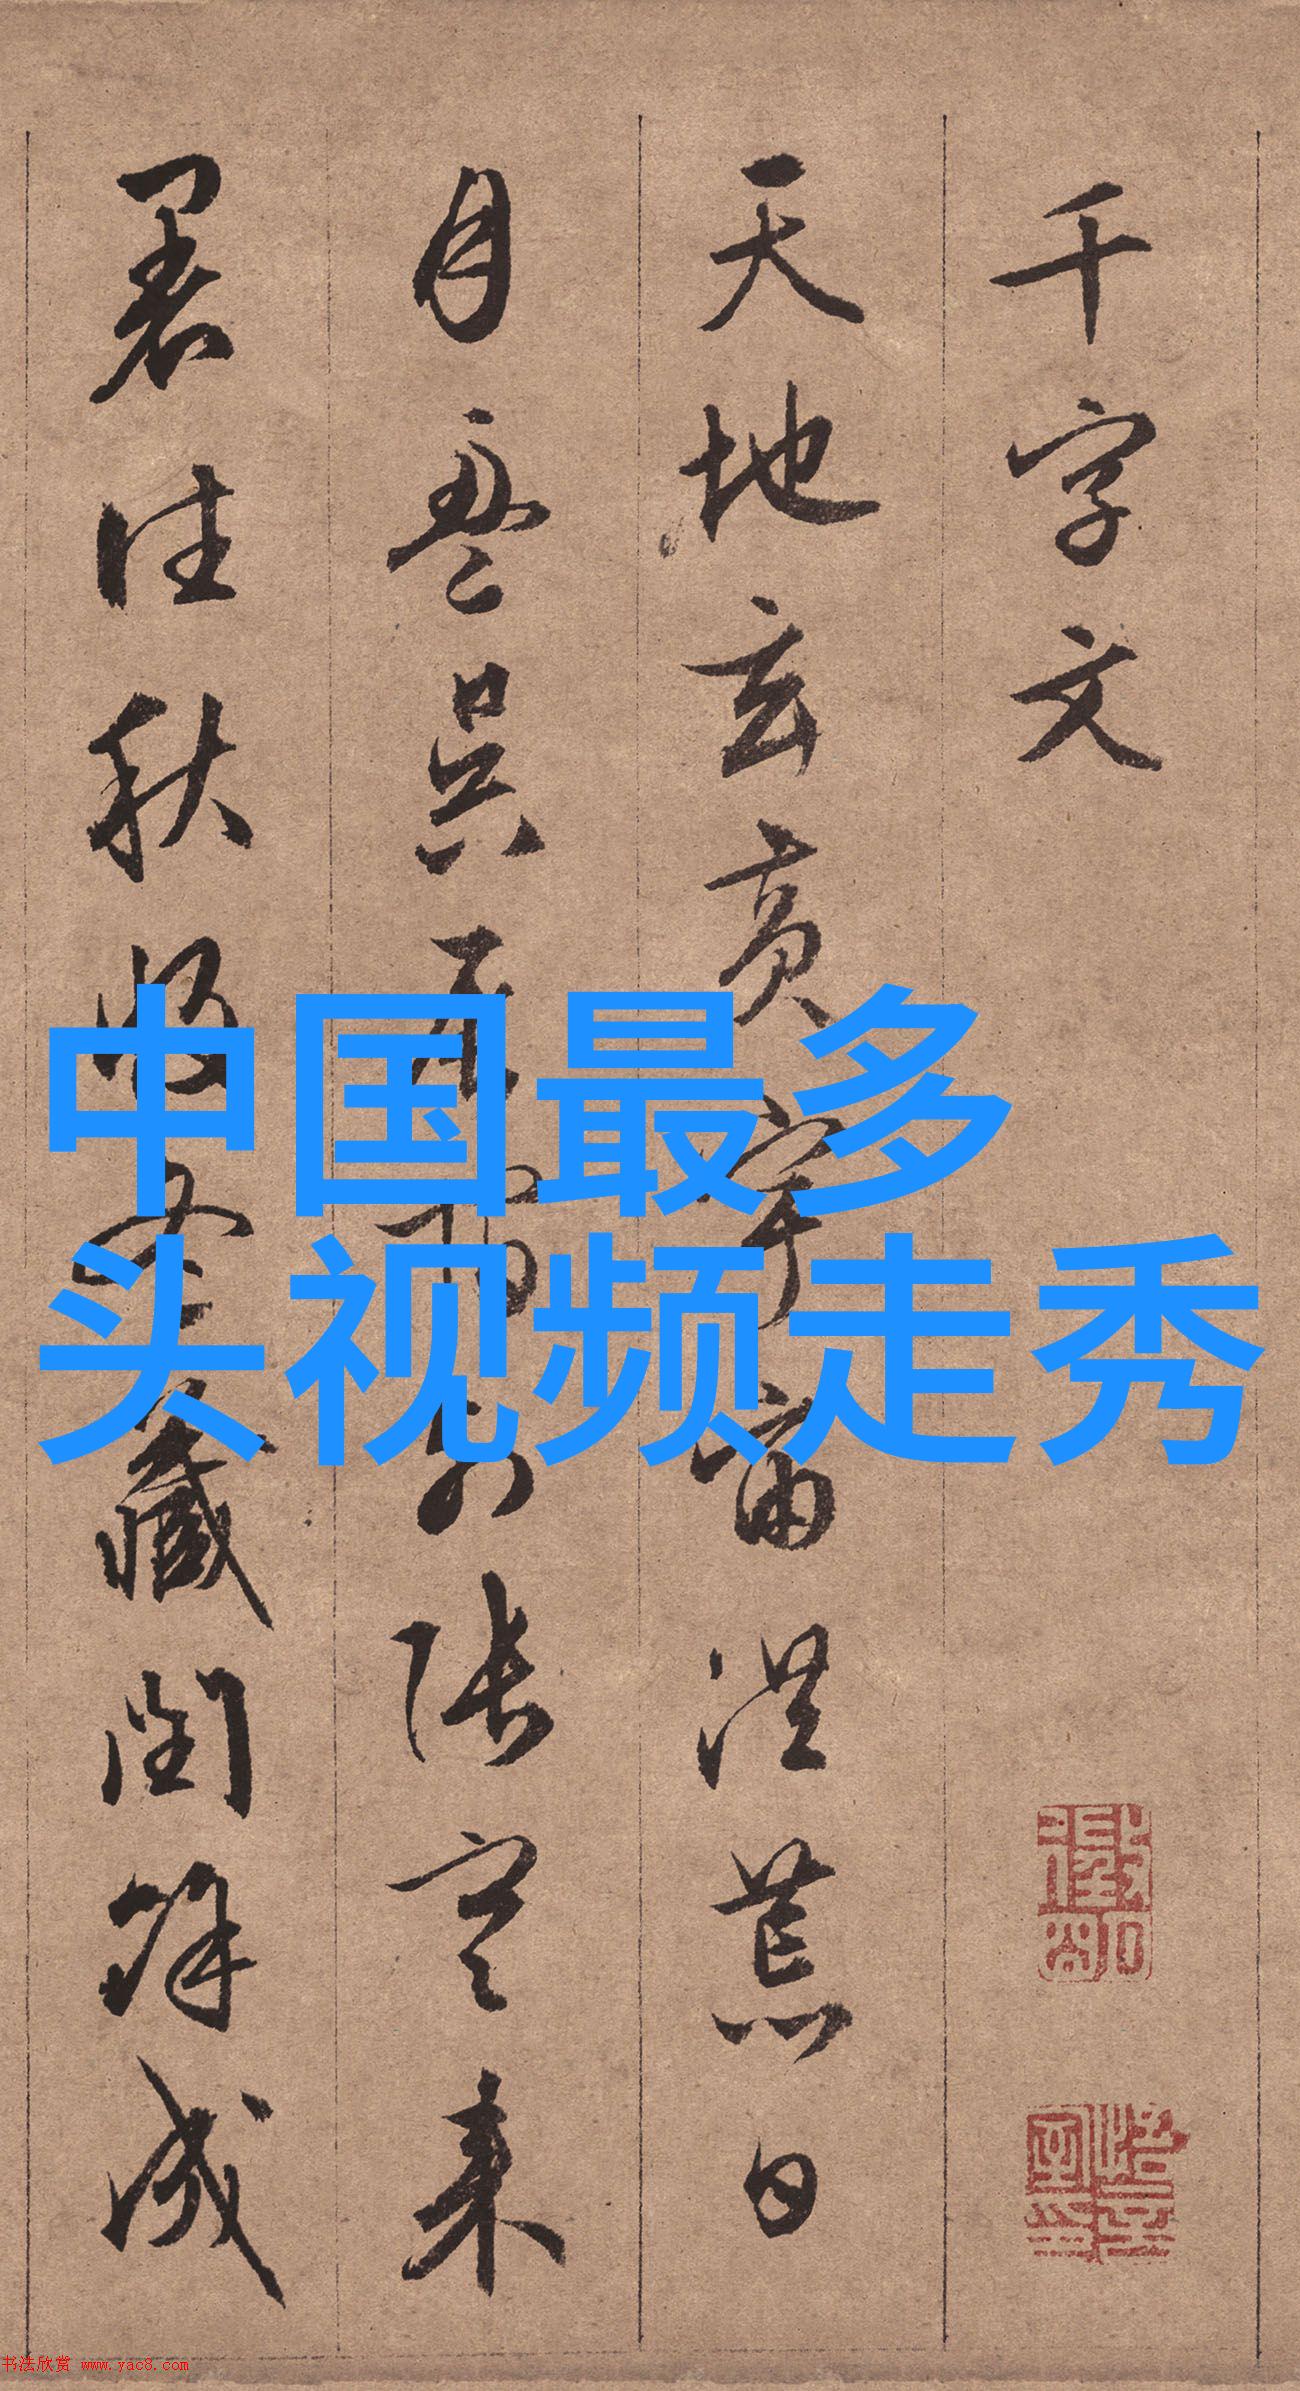 千字文
天地玄黄宇宙洪荒日
月盈昃辰宿列张寒来
暑往秋收冬藏闰余成
中国最多
头视频走秀
书法欣赏 www.yac8.com